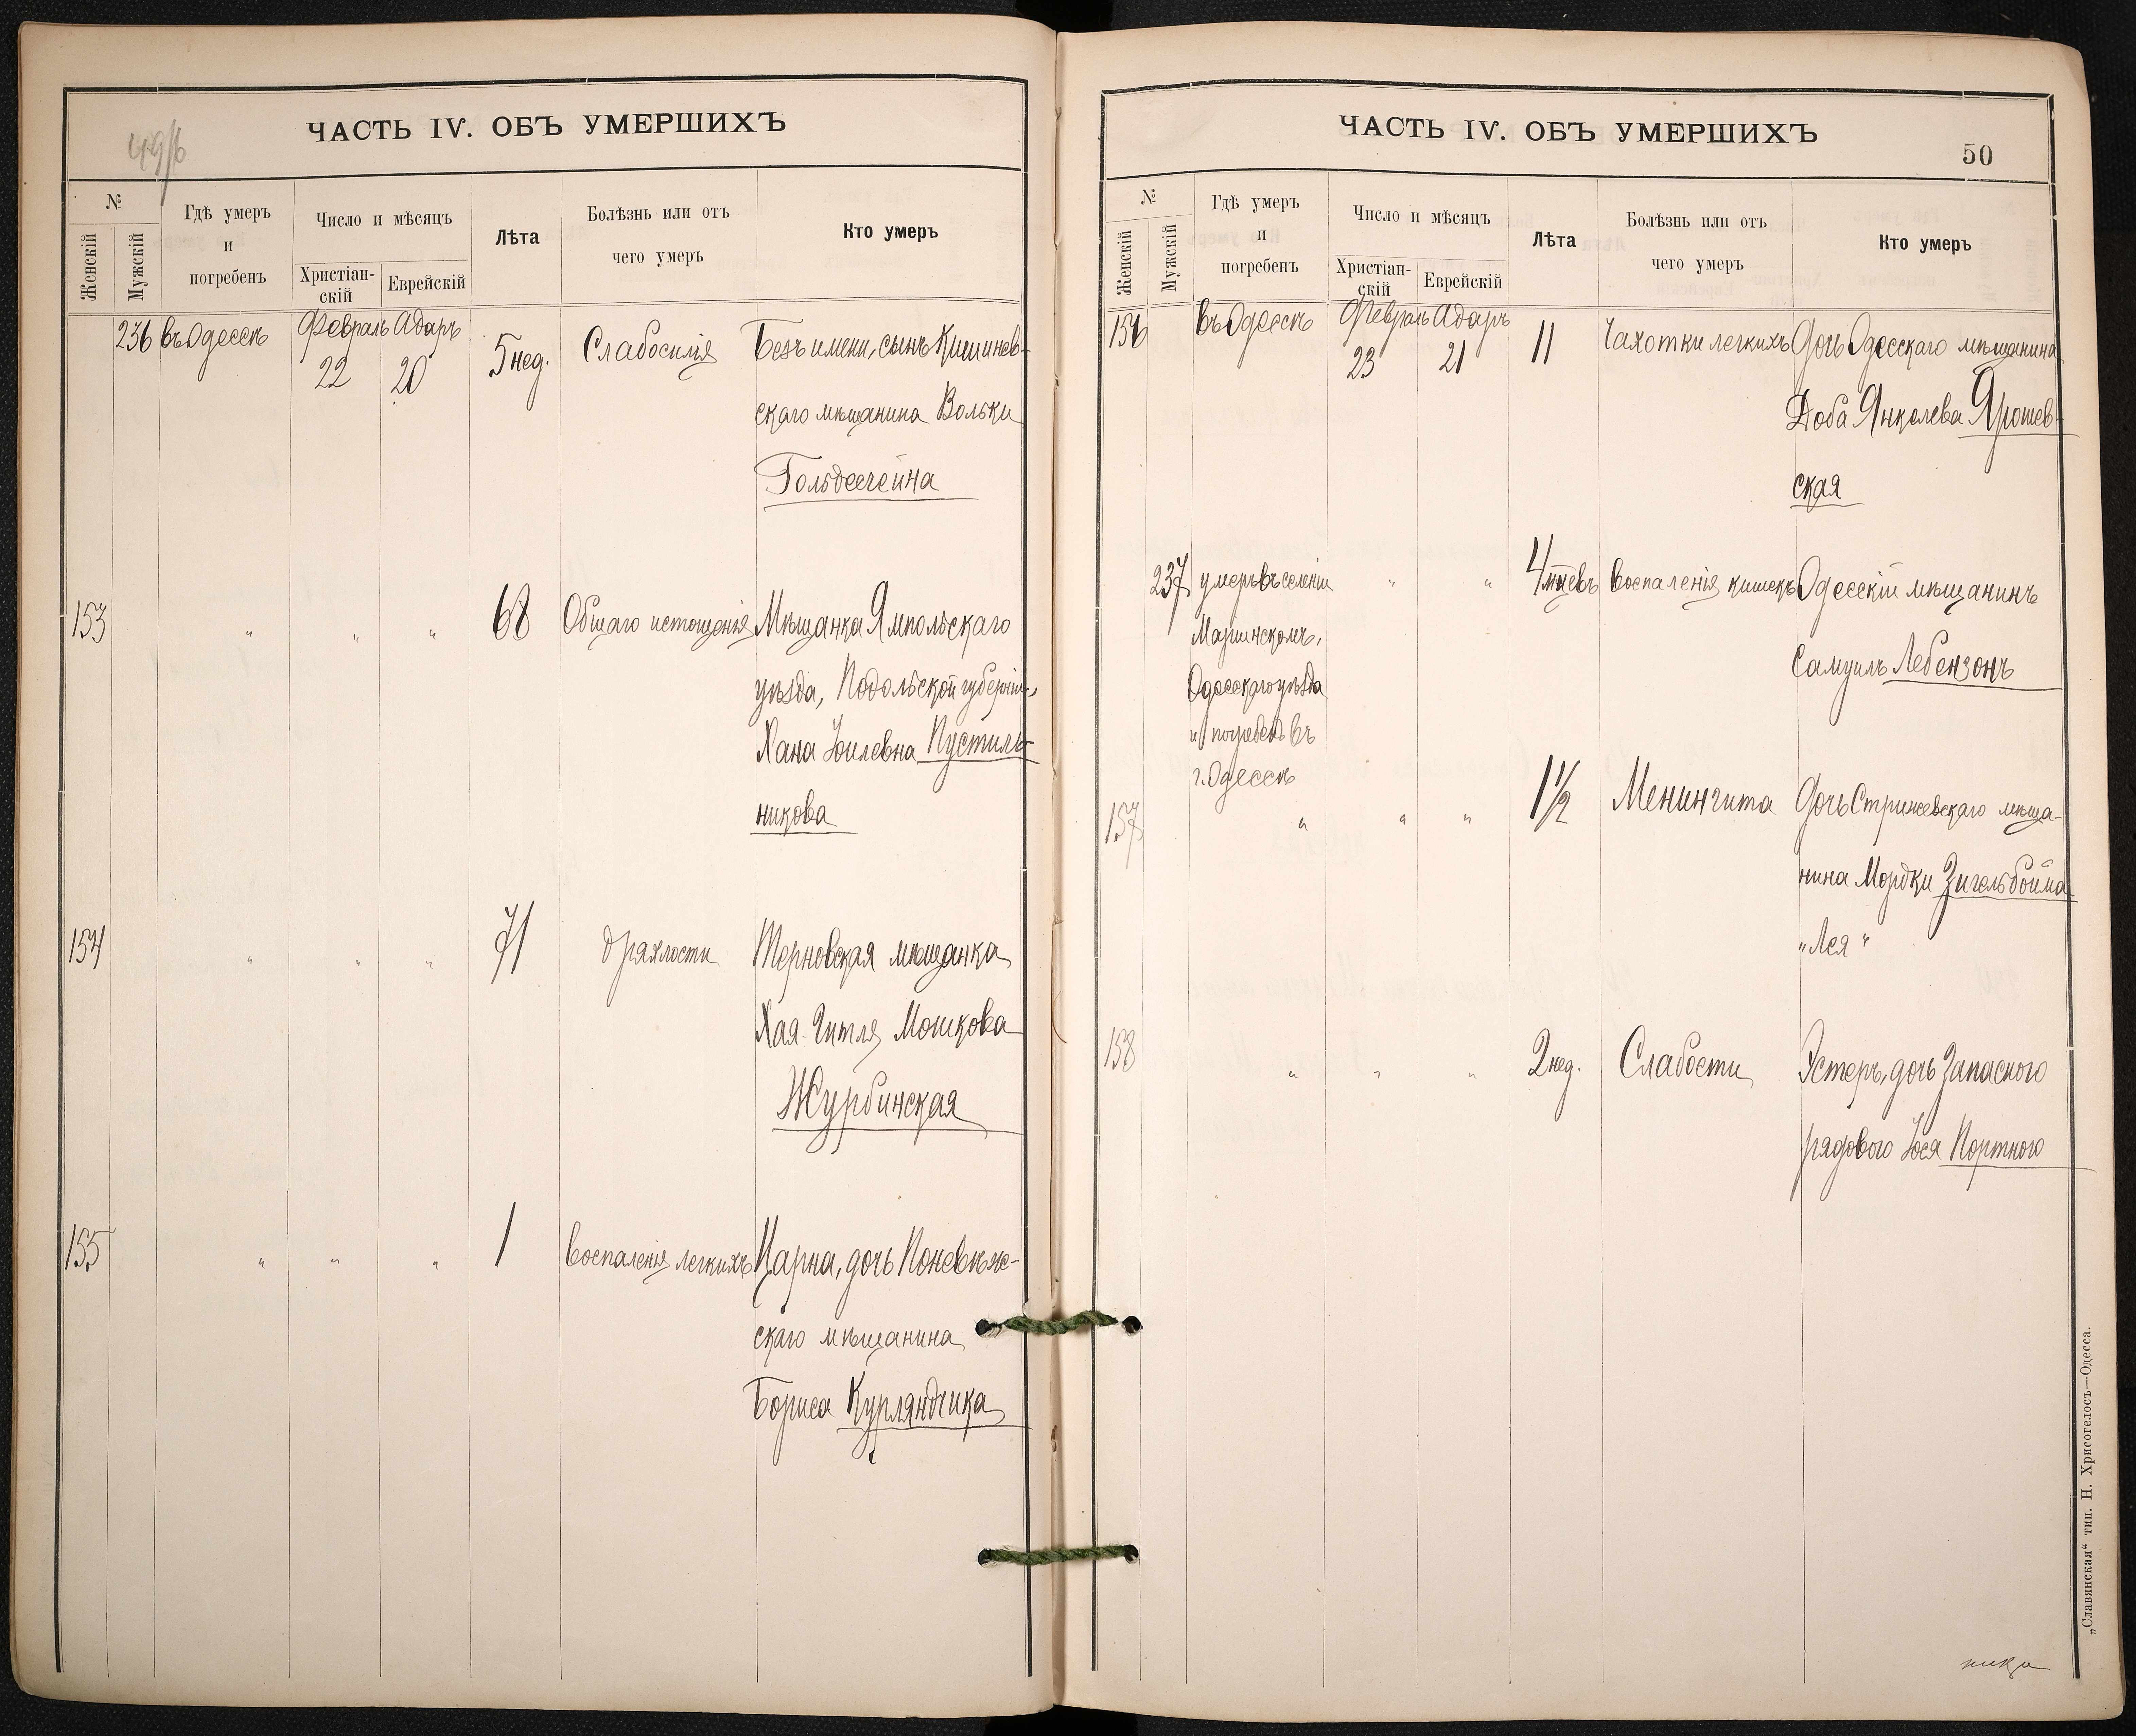 49/б
ЧАСТЬ IV. ОБЪ УМЕРШИХЪ
№
Женскій
Мужскій
Гдѣ умеръ
и
погребенъ
Число и мѣсяцъ
Христіан-
скій
Еврейскій
Лѣта
Болѣзнь или отъ
чего умеръ
Кто умеръ
236 въ Одессѣ Февраль Адаръ 5 нед. Слабосилія Безъ имени, сынъ Кишинев-
22 20
скаго мѣщанина Вольки
Гольдштейна
153 " " " 68 Общаго истощенія Мѣщанка Ямпольскаго
уѣзда, Подольской губерніи,
Хана Іоилевна Пустиль-
никова
154 " " " 71 дряхлости Терновская мѣщанка
Хая-Гитля Мошкова
Журбинская
155 " " " 1 Воспаленія легкихъ Царна, дочь Поневѣж-
скаго мѣщанина
Бориса Курляндчика
ЧАСТЬ IV. ОБЪ УМЕРШИХЪ
50
№
Женскій
Мужскій
Гдѣ умеръ
и
погребенъ
Число и мѣсяцъ
Христіан-
скій
Еврейскій
Лѣта
Болѣзнь или отъ
чего умеръ
Кто умеръ
156 въ Одессѣ Февраль Адаръ 11 Чахотки легкихъ Дочь Одесскаго мѣщанина
23 21
Доба Янкелева Ярошев-
ская
237 умеръ въ селеніи " " 4 мѣцевъ Воспаленія кишекъ Одесскій мѣщанинъ
Маріинскомъ,
Одесскаго уѣзда
Самуилъ Лебензонъ
и погребенъ въ
г. Одессѣ
157 " " " 1 1/2 Менингита Дочь Стрижевскаго мѣща-
нина Мордки Зигельбойма
"Лея"
158 " " " 2 нед. Слабости Эстеръ, дочь Запасного
рядового Іося Портного
„Славянская“ тип. Н. Хрисогелосъ—Одесса.